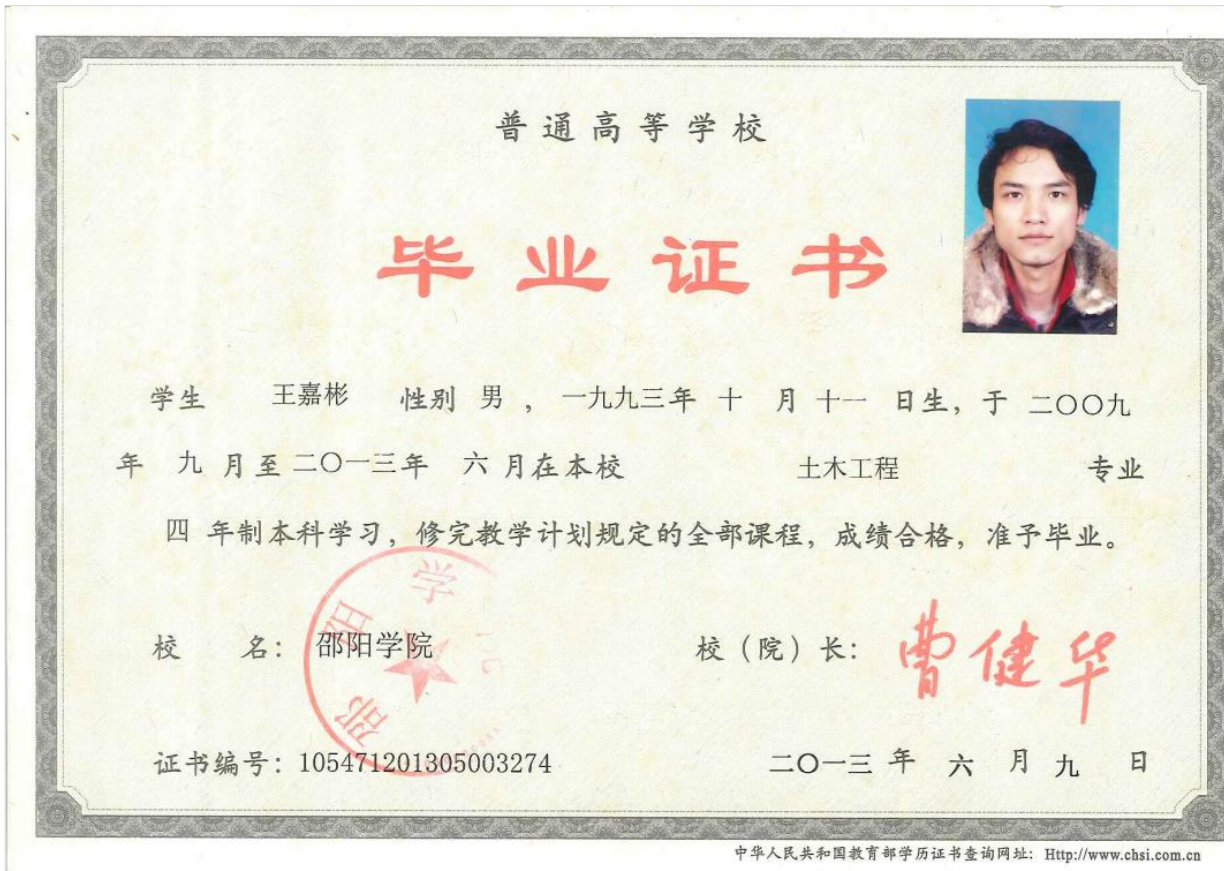 普通高等学校
毕业证书
学生 王嘉彬 性别 男 ， 一九九三年 十 月 十一 日生，于 二〇〇九
年 九 月至 二〇一三年 六 月在本校 土木工程 专业
四 年制本科学习，修完教学计划规定的全部课程，成绩合格，准予毕业。
邵阳学
校 名： 邵阳学院 校（院）长： 曹健华
证书编号：105471201305003274 二〇一三 年 六 月 九 日
中华人民共和国教育部学历证书查询网址： Http://www.chsi.com.cn